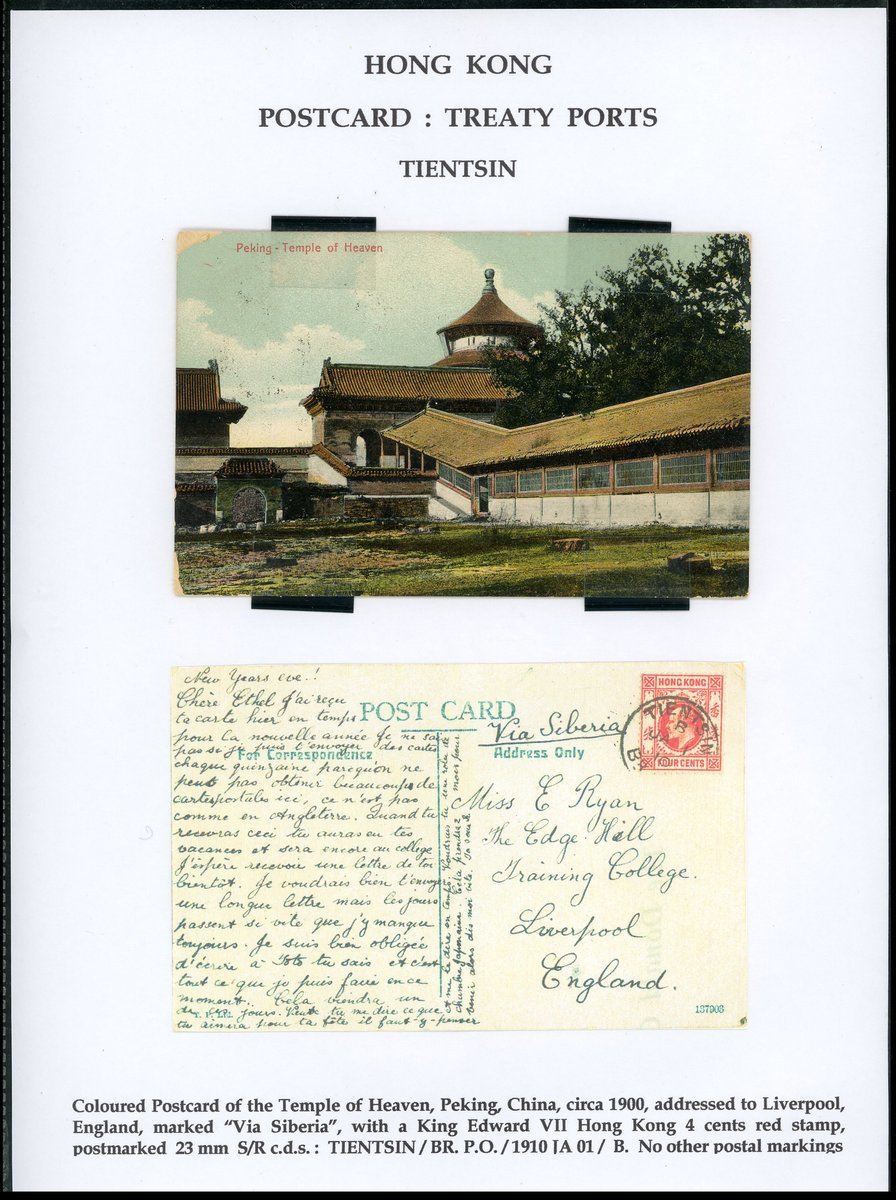 HONG KONG
POSTCARD : TREATY PORTS
TIENTSIN
Peking - Temple of Heaven
New Years eve.!
Chère Ethel J'ai reçu
ta carte hier en temps
pour la nouvelle année Je ne sai
pas si je puis t'envoyer des cartes
chaque quinzaine parcequ'on ne
peut pas obtener beaucoup de
cartespostales ici, ce n'est pas
comme en Angleterre. Quand tu
recevras ceci tu auras eu tes
vacances et sera encore au collège
J'espère recevoir une lettre de toi
bientôt. Je voudrais bien t'envoyer
une longue lettre mais les jours
passent si vite que j'y manque
toujours. Je suis bien obligée
d'écrire à tu sais et c'est
tout ce que je puis faire en ce
moment. Cela viendra un
de ces jours. Veux tu me dire ce que
tu aimera pour ta fête il faut-y-penser
et me le dire en temps. Voudrais tu une robe de
chambre Japonaise Cela prendrez mois pour
venir alors dis moi vite. Ta soeur
POST CARD
For Correspondence
Address Only
Via Siberia
HONG KONG
FOUR CENTS
TIENTSIN
B
Miss E Ryan
The Edge Hill
Training College.
Liverpool
England.
137903
Coloured Postcard of the Temple of Heaven, Peking, China, circa 1900, addressed to Liverpool,
England, marked "Via Siberia", with a King Edward VII Hong Kong 4 cents red stamp,
postmarked 23 mm S/R c.d.s. : TIENTSIN / BR. P.O. / 1910 JA 01 / B. No other postal markings